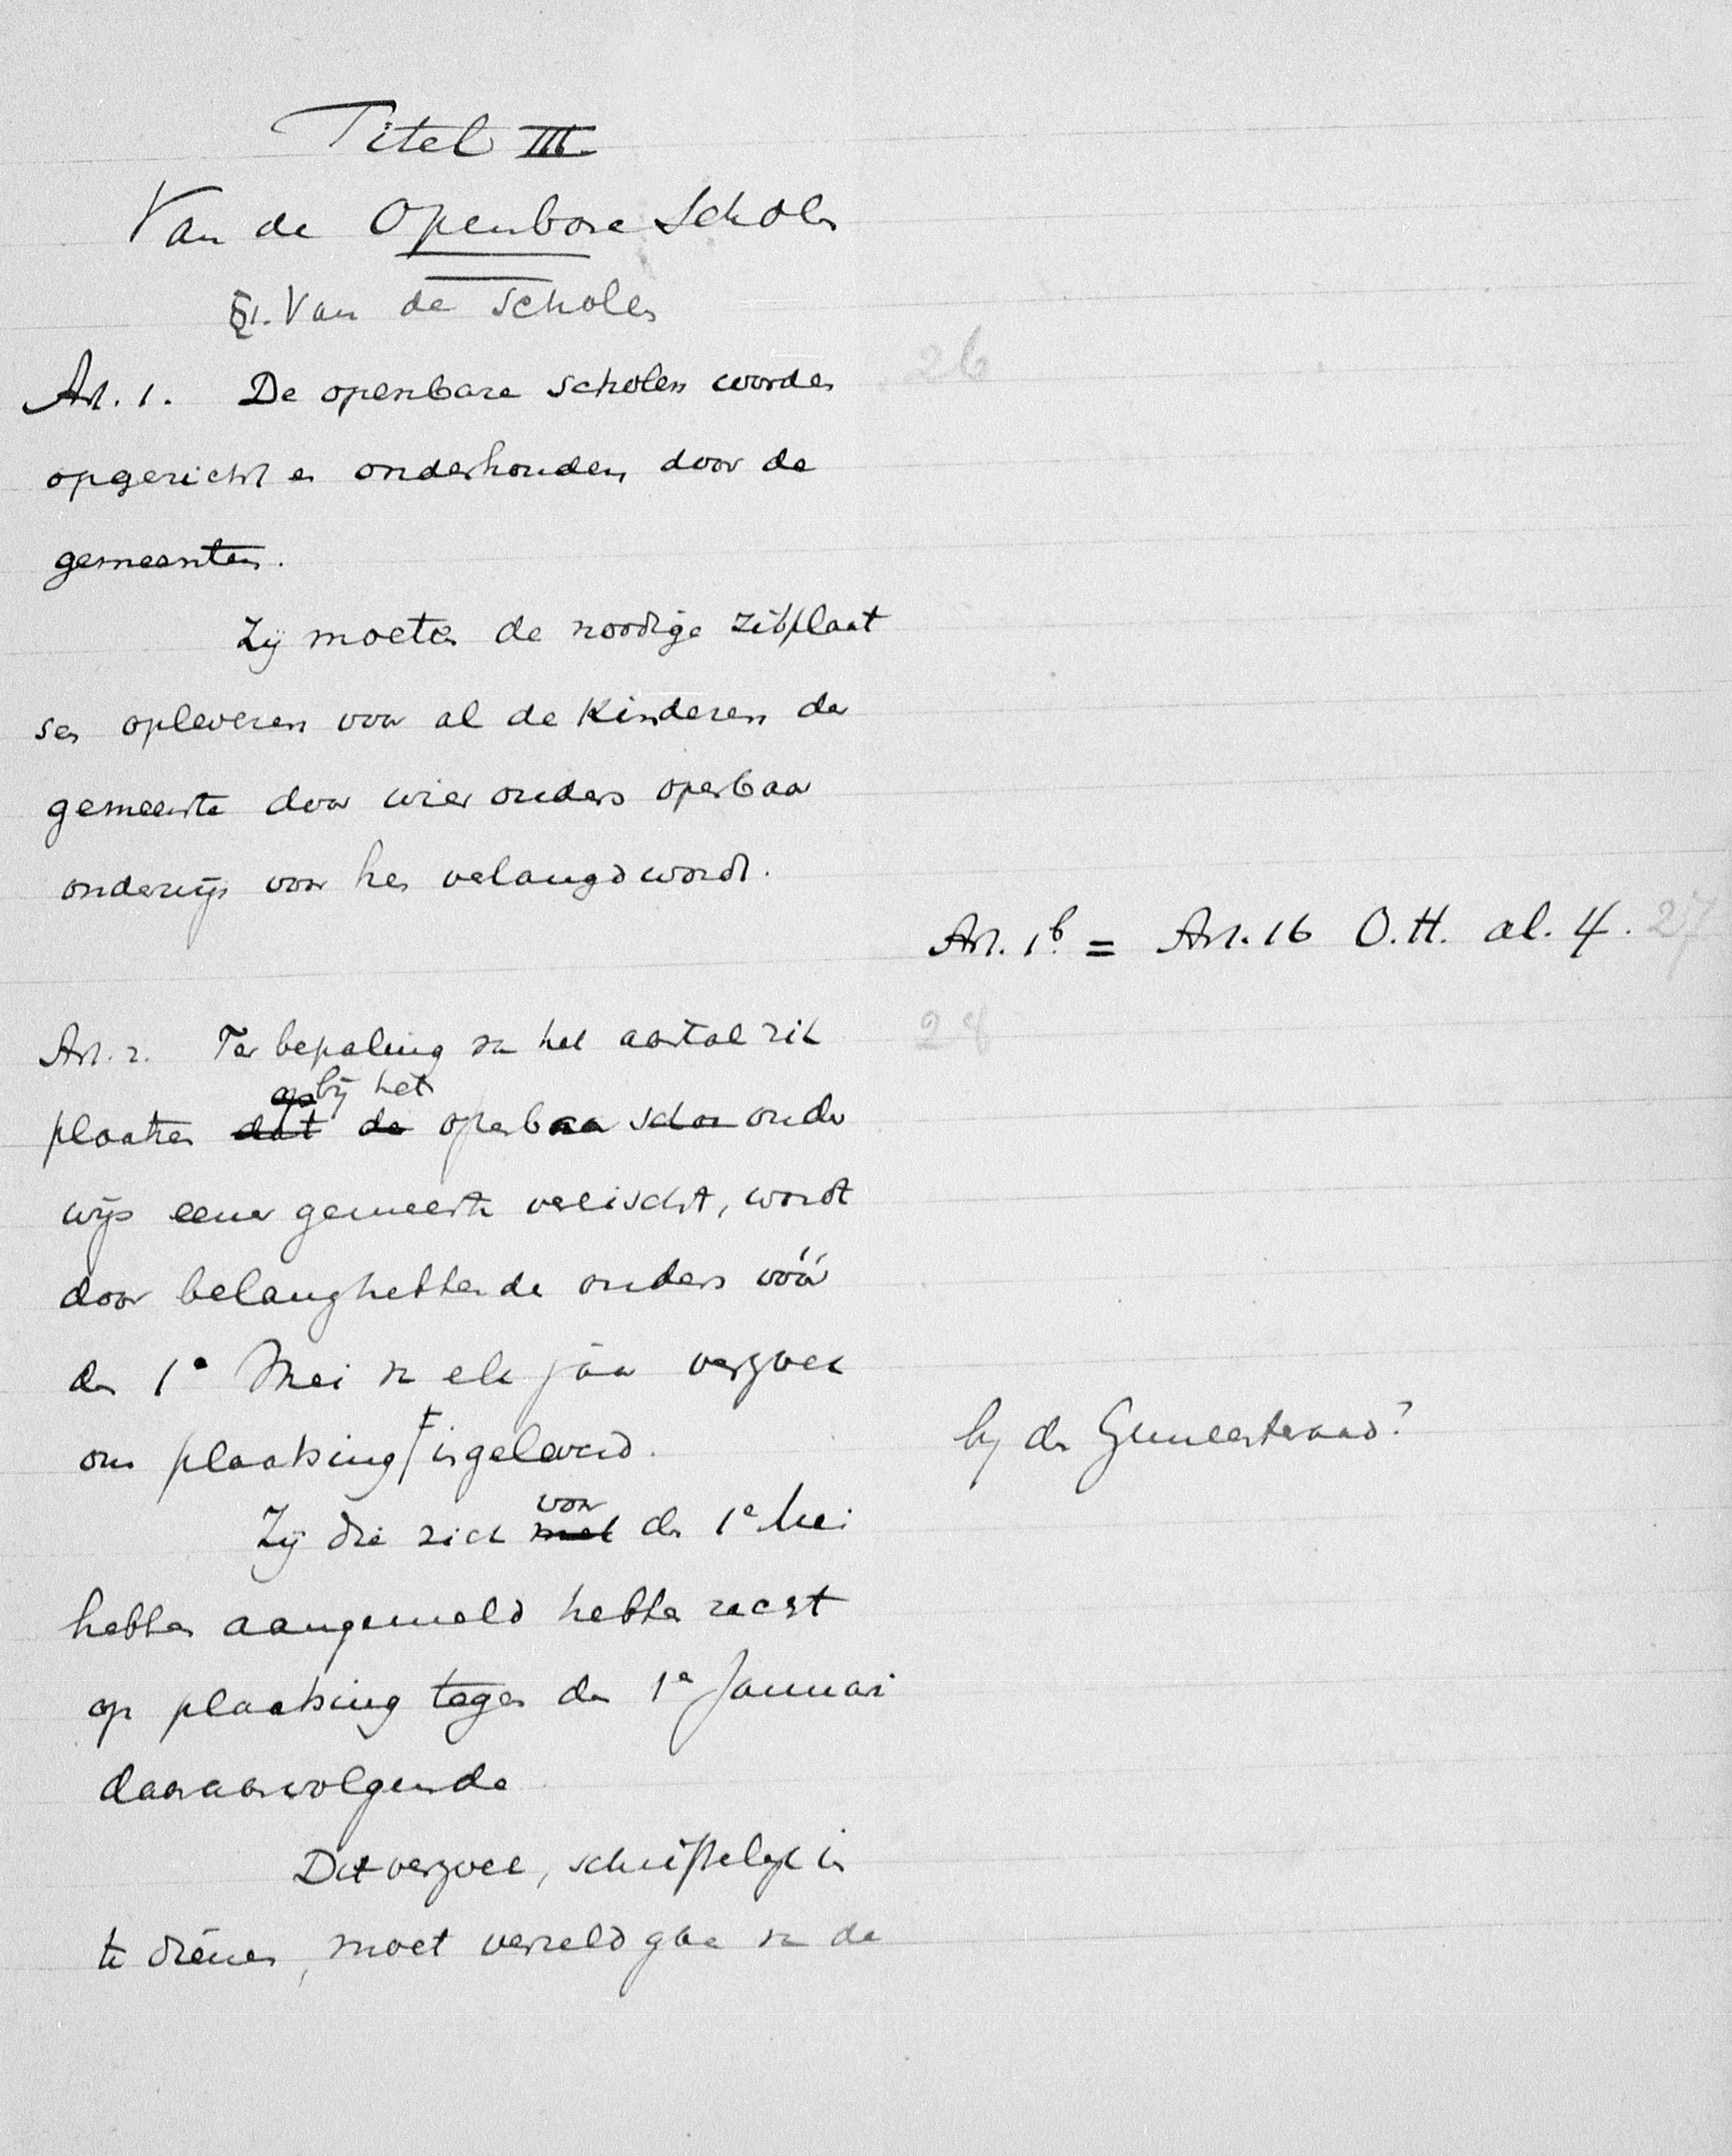 Titel III
Van de Openbare Scholen
§1. Van de Scholen
Art. 1. De openbare scholen worden
26
opgericht en onderhouden door de
gemeenten.
Zij moeten de noodige zitplaat
sen opleveren voor al de kinderen der
gemeente door wier ouders openbaar
onderwijs voor hen verlangd wordt.
Art. 1b = Art. 16 O.H. al. 4. 27
Art. 2. Ter bepaling van het aantal zit
28
op bij het
plaatsen dat de openbaar scho onder
wijs eener gemeente vereischt, wordt
door belanghebbende ouders vóór
den 1e Mei van elk jaar verzoek
om plaatsing ingeleverd.
bij den Gemeenteraad?
voor
Zij die zich met den 1e Mei
hebben aangemeld hebben recht
op plaatsing tegen den 1e Januari
daaraanvolgende
Dit verzoek, schriftelijk in
te dienen, moet verzeld gaan van de